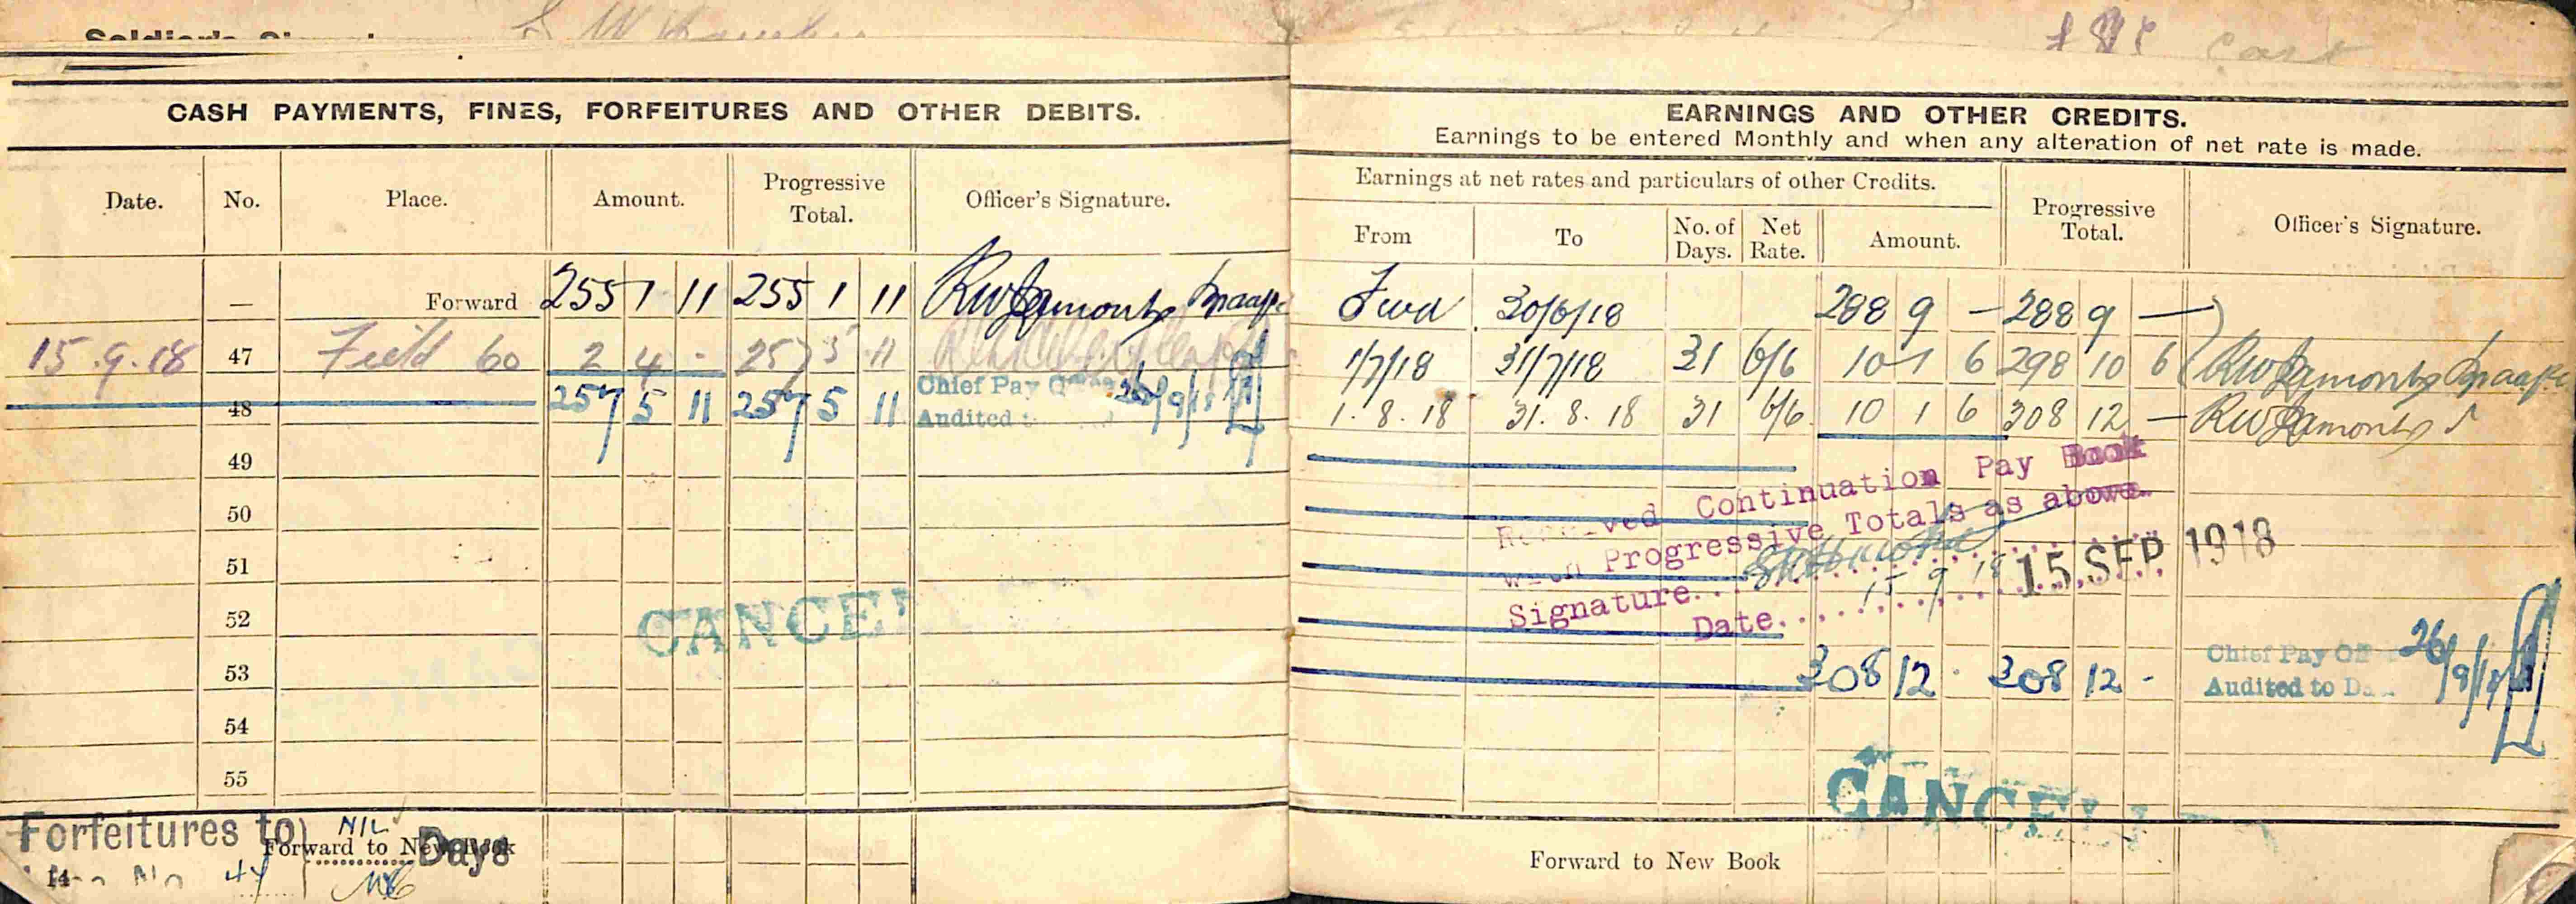 CASH PAYMENTS, FINES, FORFEITURES AND OTHER DEBITS.
Date. No. Place. Amount. Progressive Total. Officer's Signature.
— Forward 255 1 11 255 1 11
15.9.18 47 Field 60 2 4 - 257 5 11
48 257 5 11 257 5 11 Chief Pay 26/9/18
Audited
49
50
51
52
CANCEL
53
54
55
Forfeitures to NIL Days
Forward to New Book
No 47
14
£ cast
EARNINGS AND OTHER CREDITS.
Earnings to be entered Monthly and when any alteration of net rate is made.
Earnings at net rates and particulars of other Credits. Progressive Total. Officer's Signature.
From To No. of Days. Net Rate. Amount.
Fwd 30/6/18 288 9 — 288 9 —
1/7/18 31/7/18 31 6/6 10 1 6 298 10 6
1.8.18 31.8.18 31 6/6 10 1 6 308 12 —
Received Continuation Pay Book
with Progressive Totals as above.
Signature
Date 15 9 18 15 SEP 1918
308 12 - 308 12 - Chief Pay Off 26/9/18
Audited to Da
CANCEL
Forward to New Book